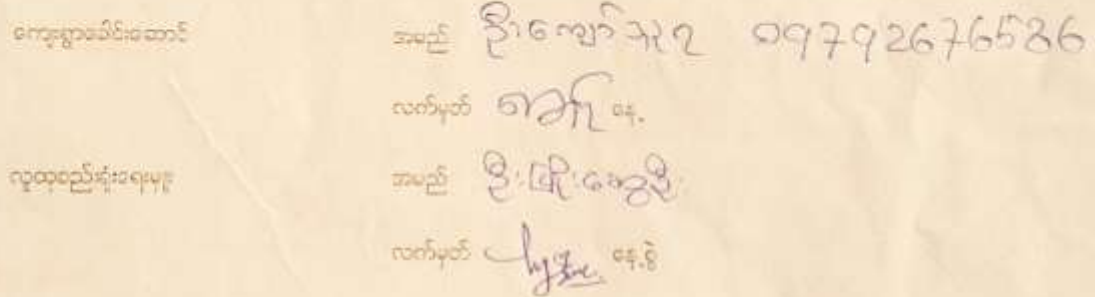 ကျေးရွာခေါင်းဆောင် အမည် ဦးကျော်သူရ 09792676586
လက်မှတ် နေ့
လူထုစည်းရုံးရေးမှူး အမည် ဦးဖြိုးဆွေဦး
လက်မှတ် နေ့စွဲ